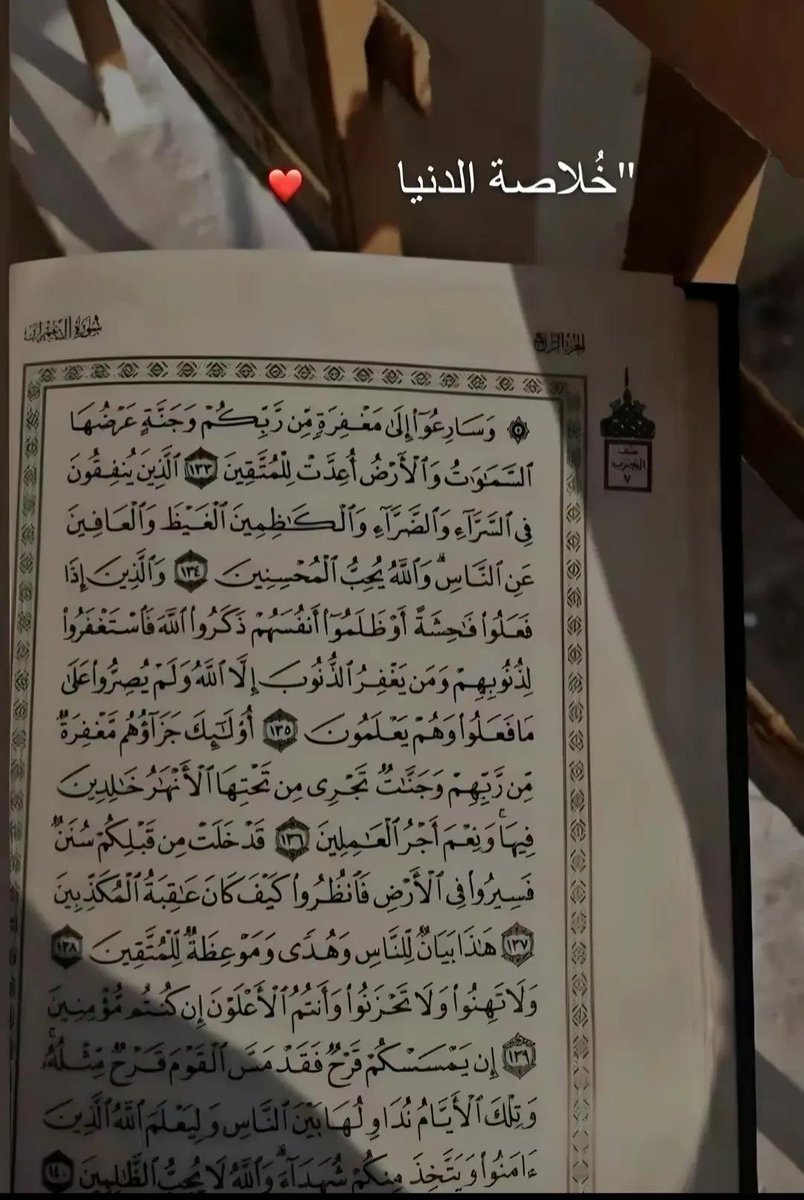 "خُلاصة الدنيا ❤️
الجزء الرابع
سُورَةُ آلِ عِمۡرَانَ
نصف
الحزب
٧
۞ وَسَارِعُوٓاْ إِلَىٰ مَغۡفِرَةٖ مِّن رَّبِّكُمۡ وَجَنَّةٍ عَرۡضُهَا
ٱلسَّمَٰوَٰتُ وَٱلۡأَرۡضُ أُعِدَّتۡ لِلۡمُتَّقِينَ ١٣٣ ٱلَّذِينَ يُنفِقُونَ
فِي ٱلسَّرَّآءِ وَٱلضَّرَّآءِ وَٱلۡكَٰظِمِينَ ٱلۡغَيۡظَ وَٱلۡعَافِينَ
عَنِ ٱلنَّاسِۗ وَٱللَّهُ يُحِبُّ ٱلۡمُحۡسِنِينَ ١٣٤ وَٱلَّذِينَ إِذَا
فَعَلُواْ فَٰحِشَةً أَوۡ ظَلَمُوٓاْ أَنفُسَهُمۡ ذَكَرُواْ ٱللَّهَ فَٱسۡتَغۡفَرُواْ
لِذُنُوبِهِمۡ وَمَن يَغۡفِرُ ٱلذُّنُوبَ إِلَّا ٱللَّهُ وَلَمۡ يُصِرُّواْ عَلَىٰ
مَا فَعَلُواْ وَهُمۡ يَعۡلَمُونَ ١٣٥ أُوْلَٰٓئِكَ جَزَآؤُهُم مَّغۡفِرَةٞ
مِّن رَّبِّهِمۡ وَجَنَّٰتٞ تَجۡرِي مِن تَحۡتِهَا ٱلۡأَنۡهَٰرُ خَٰلِدِينَ
فِيهَاۚ وَنِعۡمَ أَجۡرُ ٱلۡعَٰمِلِينَ ١٣٦ قَدۡ خَلَتۡ مِن قَبۡلِكُمۡ سُنَنٞ
فَسِيرُواْ فِي ٱلۡأَرۡضِ فَٱنظُرُواْ كَيۡفَ كَانَ عَٰقِبَةُ ٱلۡمُكَذِّبِينَ
١٣٧ هَٰذَا بَيَانٞ لِّلنَّاسِ وَهُدٗى وَمَوۡعِظَةٞ لِّلۡمُتَّقِينَ ١٣٨
وَلَا تَهِنُواْ وَلَا تَحۡزَنُواْ وَأَنتُمُ ٱلۡأَعۡلَوۡنَ إِن كُنتُم مُّؤۡمِنِينَ
١٣٩ إِن يَمۡسَسۡكُمۡ قَرۡحٞ فَقَدۡ مَسَّ ٱلۡقَوۡمَ قَرۡحٞ مِّثۡلُهُۥۚ
وَتِلۡكَ ٱلۡأَيَّامُ نُدَاوِلُهَا بَيۡنَ ٱلنَّاسِ وَلِيَعۡلَمَ ٱللَّهُ ٱلَّذِينَ
ءَامَنُواْ وَيَتَّخِذَ مِنكُمۡ شُهَدَآءَۗ وَٱللَّهُ لَا يُحِبُّ ٱلظَّٰلِمِينَ ١٤٠